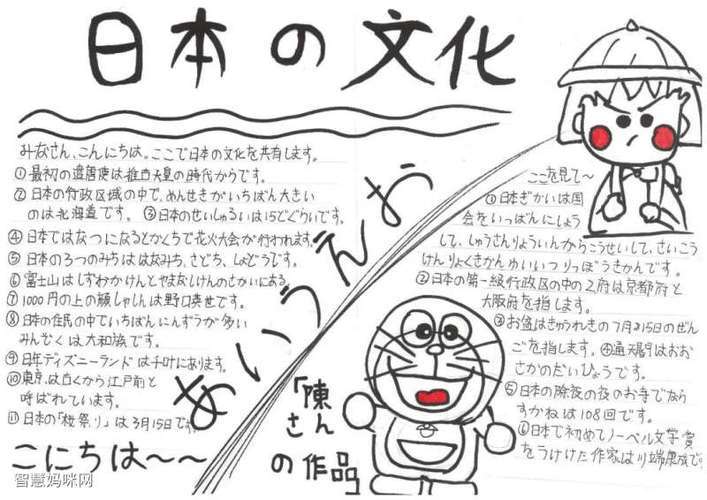 日本の文化
みなさん、こんにちは。ここで日本の文化を共有します。
① 最初の遣唐使は推古天皇の時代からです。
② 日本の行政区域の中で、めんせきがいちばん大きい
のは北海道です。 ③日本のせいしゅるいは15どぐらいです。
④ 日本ではなつになるとかくちで花火大会が行われます。
⑤ 日本の3つのみちは はなみち、さどう、しょどうです。
⑥ 富士山はしずおかけんとやまなしけんのさかいにある。
⑦ 1000円の上の顔しゃしんは野口英世です。
⑧ 日本の住民の中でいちばんにんずうが多い
みんぞくは大和族です。
⑨ 日本ディズニーランドは千叶にあります。
⑩ 東京は古くから江戸前と
呼ばれています。
⑪ 日本の「桜祭り」は3月15日です
こにちは〜〜
あいうえお
「陳
さん
の作品
ここを見て〜
①日本ぎかいは国
会をいっぱんにしょう
して、しゅうさんりょういんからこうせいして、さいこう
けんりょくきかんゆいいつりっぽうきかんです。
② 日本の第一級行政区の中の2府は京都府と
大阪府を指します。
③お盆はきゅうれきの7月15日のぜん
ごを指します。④通天閣はおお
さかのだいひょうです。
⑤日本の除夜の夜のお寺でなら
すかねは108回です。
⑥日本で初めてノーベル文学賞
をうけた作家は川端康成です
智慧妈咪网